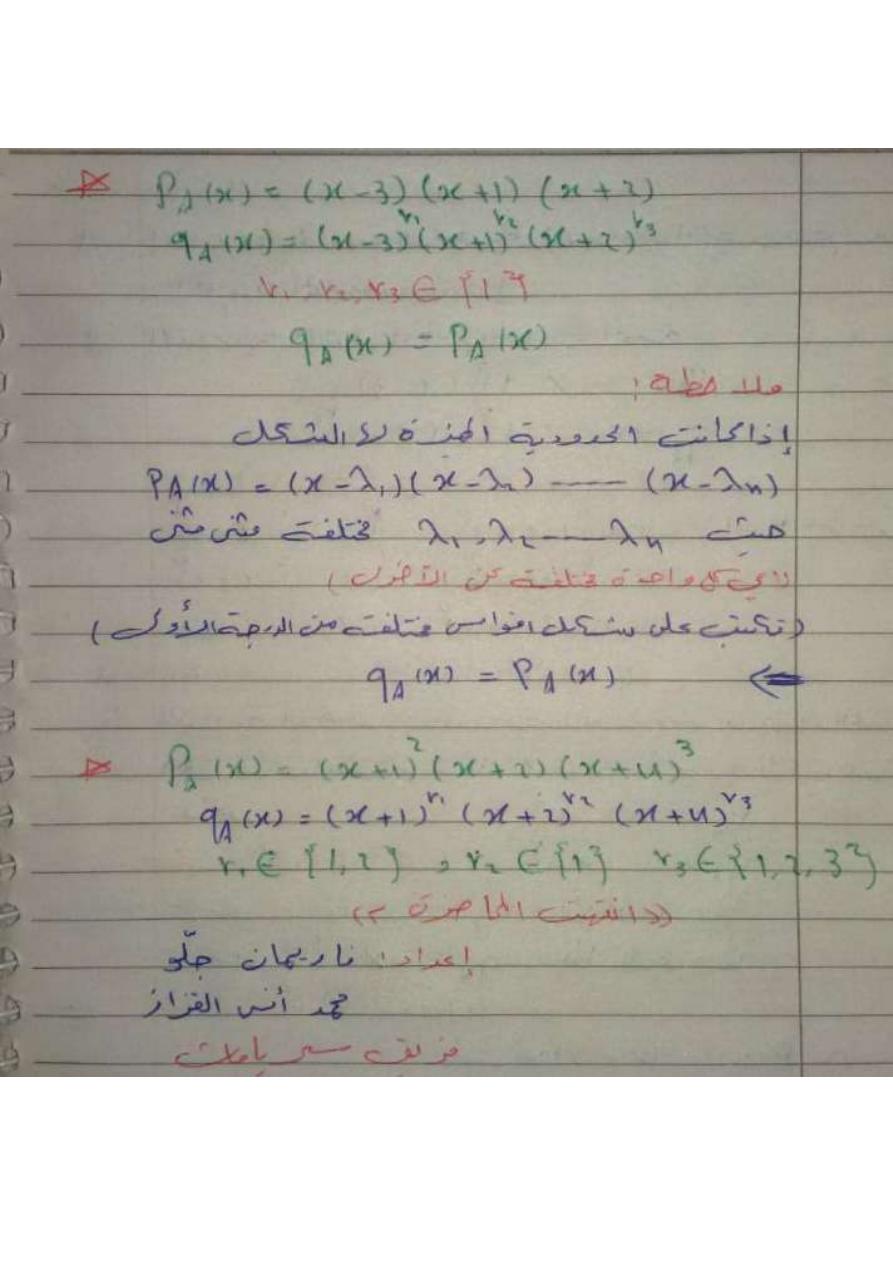 P_A(x) = (x-3)(x+1)(x+2)
q_A(x) = (x-3)^{r₁}(x+1)^{r₂}(x+2)^{r₃}
r₁, r₂, r₃ ∈ {1}
q_A(x) = P_A(x)
ملاحظة:
إذا كانت الحدودية المميزة لها الشكل
P_A(x) = (x-λ₁)(x-λ₂) ---- (x-λₙ)
حيث λ₁, λ₂ ---- λₙ مختلفة مثنى مثنى
(أي كل واحدة مختلفة عن الأخرى)
(تكتب على شكل اقواس مختلفة من الدرجة الأولى)
⇐ q_A(x) = P_A(x)
P_A(x) = (x+1)²(x+2)(x+4)³
q_A(x) = (x+1)^{r₁} (x+2)^{r₂} (x+4)^{r₃}
r₁ ∈ {1,2} , r₂ ∈ {1} r₃ ∈ {1,2,3}
((انتهت المحاضرة
إعداد: ناريمان جلّو
محمد أنس القزاز
فريق